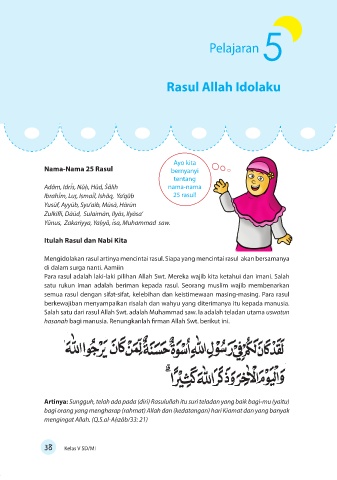 Pelajaran 5
Rasul Allah Idolaku
Ayo kita
bernyanyi
tentang
nama-nama
25 rasul!
Nama-Nama 25 Rasul
Adãm, Idrĩs, Nũh, Hũd, Ṣãlih
Ibrahĩm, Luṭ, Ismaĩl, Ishãq, Ya'qũb
Yusũf, Ayyũb, Syu'aib, Mũsã, Hãrũn
Zulkifli, Dãũd, Sulaimãn, Ilyãs, Ilyãsa'
Yũnus, Zakariyya, Yaḥyã, ĩsa, Muhammad saw.
Itulah Rasul dan Nabi Kita
Mengidolakan rasul artinya mencintai rasul. Siapa yang mencintai rasul akan bersamanya
di dalam surga nanti. Aamiin
Para rasul adalah laki-laki pilihan Allah Swt. Mereka wajib kita ketahui dan imani. Salah
satu rukun iman adalah beriman kepada rasul. Seorang muslim wajib membenarkan
semua rasul dengan sifat-sifat, kelebihan dan keistimewaan masing-masing. Para rasul
berkewajiban menyampaikan risalah dan wahyu yang diterimanya itu kepada manusia.
Salah satu dari rasul Allah Swt. adalah Muhammad saw. Ia adalah teladan utama uswatun
hasanah bagi manusia. Renungkanlah firman Allah Swt. berikut ini.
لَقَدْ كَانَ لَكُمْ فِيْ رَسُوْلِ اللّٰهِ اُسْوَةٌ حَسَنَةٌ لِّمَنْ كَانَ يَرْجُوا اللّٰهَ
وَالْيَوْمَ الْاٰخِرَ وَذَكَرَ اللّٰهَ كَثِيْرًاۗ
Artinya: Sungguh, telah ada pada (diri) Rasulullah itu suri teladan yang baik bagi-mu (yaitu)
bagi orang yang mengharap (rahmat) Allah dan (kedatangan) hari Kiamat dan yang banyak
mengingat Allah. (Q.S.al-Aḥzãb/33: 21)
38 Kelas V SD/MI